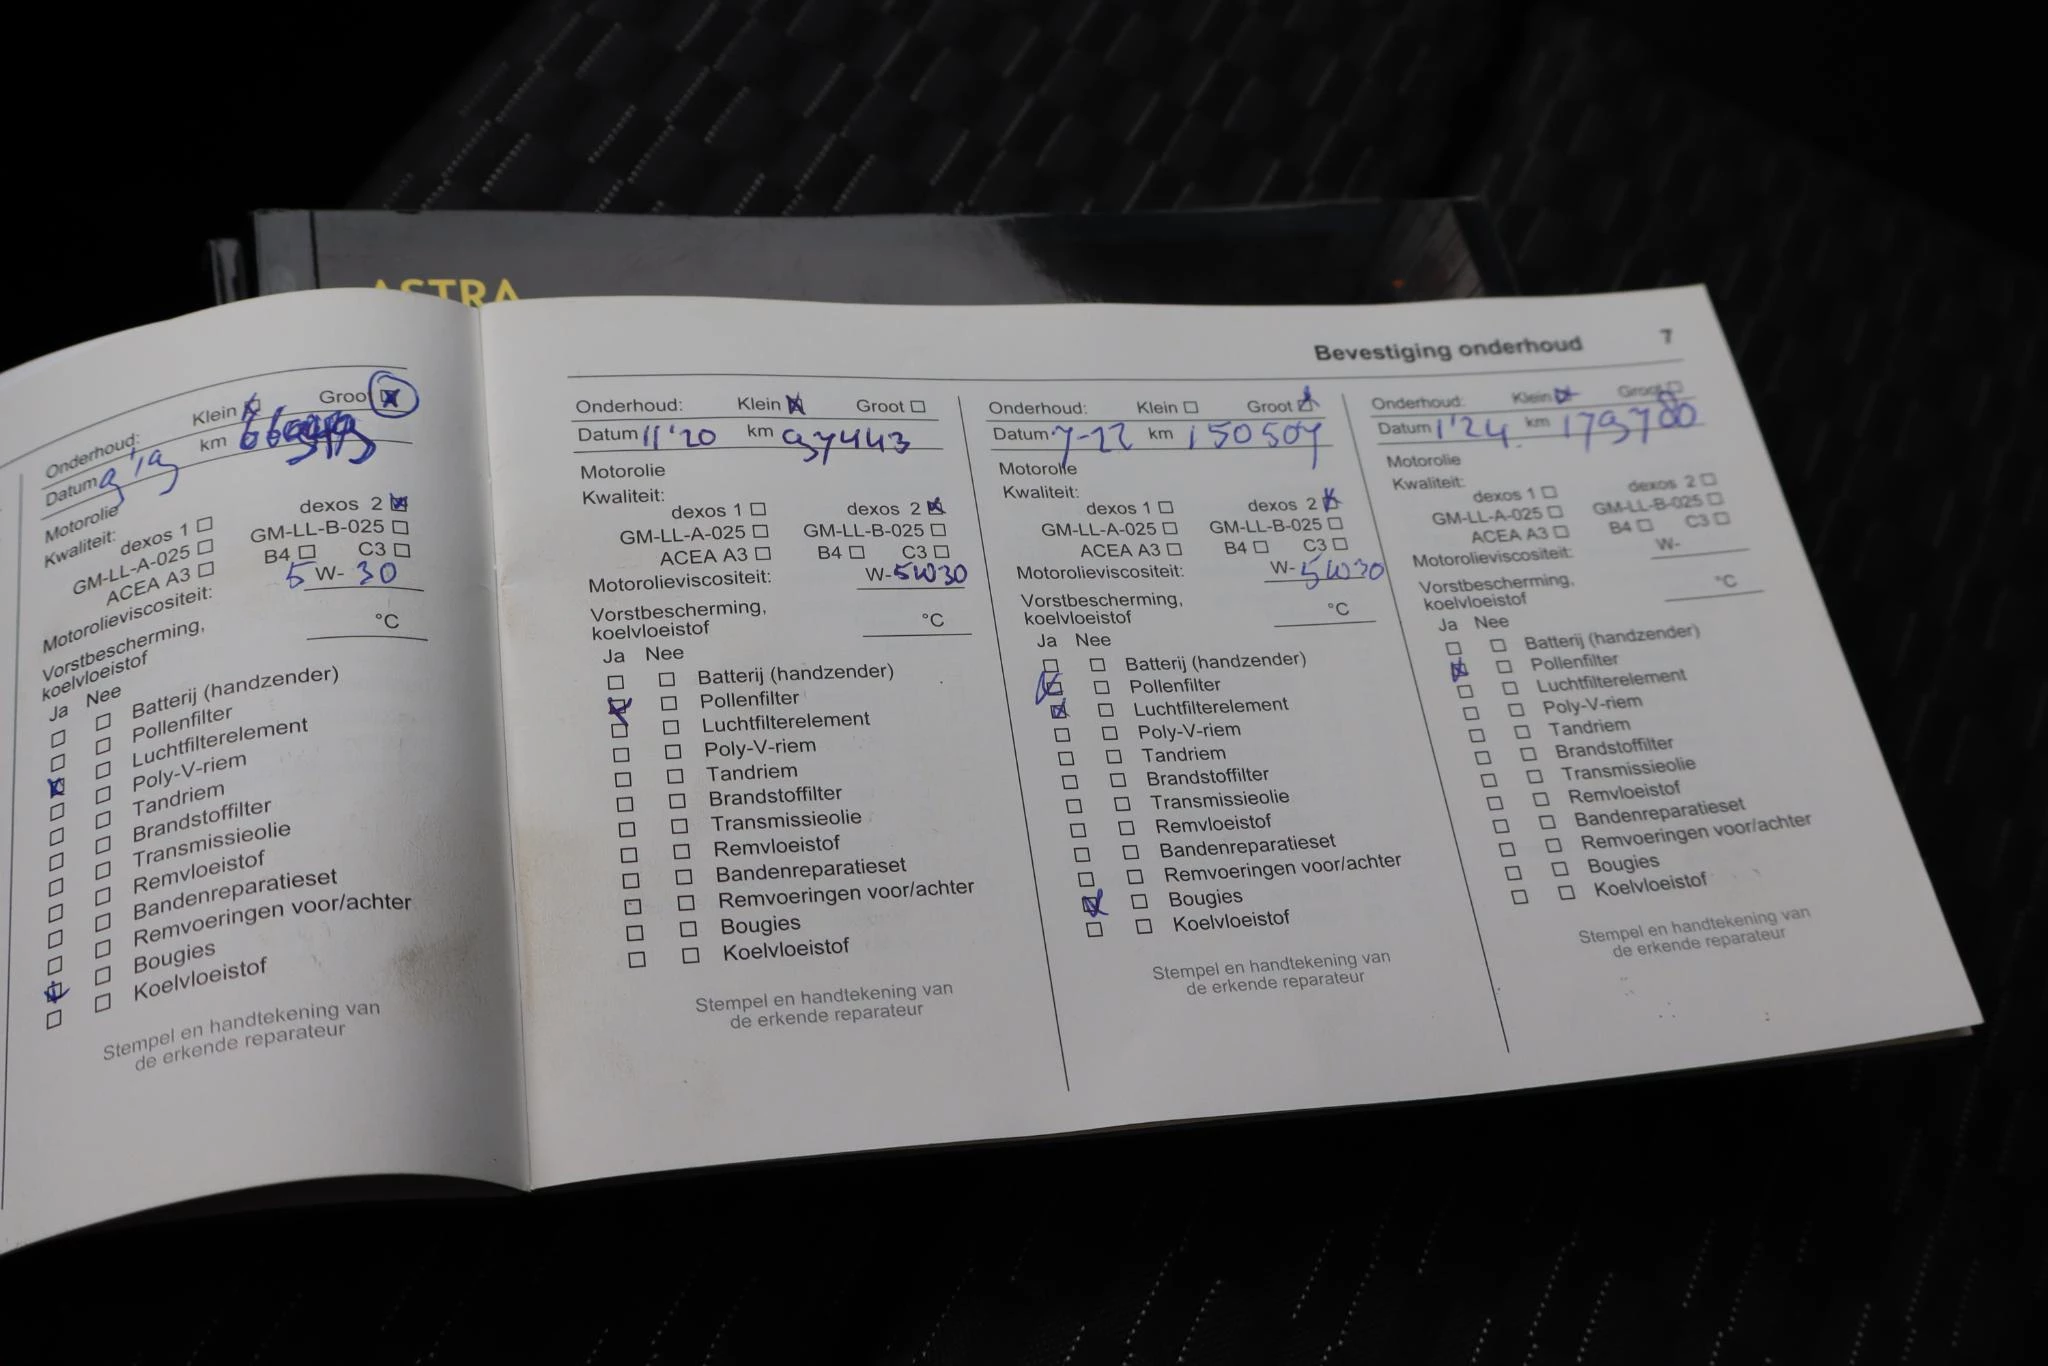 ASTRA
Onderhoud: Klein Groot
Datum 9'19 km
Motorolie
Kwaliteit:
dexos 1 dexos 2
GM-LL-A-025 GM-LL-B-025
ACEA A3 B4 C3
Motorolieviscositeit: 5 W- 30
Vorstbescherming,
koelvloeistof °C
Ja Nee
Batterij (handzender)
Pollenfilter
Luchtfilterelement
Poly-V-riem
Tandriem
Brandstoffilter
Transmissieolie
Remvloeistof
Bandenreparatieset
Remvoeringen voor/achter
Bougies
Koelvloeistof
Stempel en handtekening van
de erkende reparateur
Bevestiging onderhoud 7
Onderhoud: Klein Groot
Datum 11'20 km 97443
Motorolie
Kwaliteit:
dexos 1 dexos 2
GM-LL-A-025 GM-LL-B-025
ACEA A3 B4 C3
Motorolieviscositeit: W-5W30
Vorstbescherming,
koelvloeistof °C
Ja Nee
Batterij (handzender)
Pollenfilter
Luchtfilterelement
Poly-V-riem
Tandriem
Brandstoffilter
Transmissieolie
Remvloeistof
Bandenreparatieset
Remvoeringen voor/achter
Bougies
Koelvloeistof
Stempel en handtekening van
de erkende reparateur
Onderhoud: Klein Groot
Datum 7-22 km 150507
Motorolie
Kwaliteit:
dexos 1 dexos 2
GM-LL-A-025 GM-LL-B-025
ACEA A3 B4 C3
Motorolieviscositeit: W-5W30
Vorstbescherming,
koelvloeistof °C
Ja Nee
Batterij (handzender)
Pollenfilter
Luchtfilterelement
Poly-V-riem
Tandriem
Brandstoffilter
Transmissieolie
Remvloeistof
Bandenreparatieset
Remvoeringen voor/achter
Bougies
Koelvloeistof
Stempel en handtekening van
de erkende reparateur
Onderhoud: Klein Groot
Datum 1'24 km 179780
Motorolie
Kwaliteit:
dexos 1 dexos 2
GM-LL-A-025 GM-LL-B-025
ACEA A3 B4 C3
Motorolieviscositeit: W-
Vorstbescherming,
koelvloeistof °C
Ja Nee
Batterij (handzender)
Pollenfilter
Luchtfilterelement
Poly-V-riem
Tandriem
Brandstoffilter
Transmissieolie
Remvloeistof
Bandenreparatieset
Remvoeringen voor/achter
Bougies
Koelvloeistof
Stempel en handtekening van
de erkende reparateur